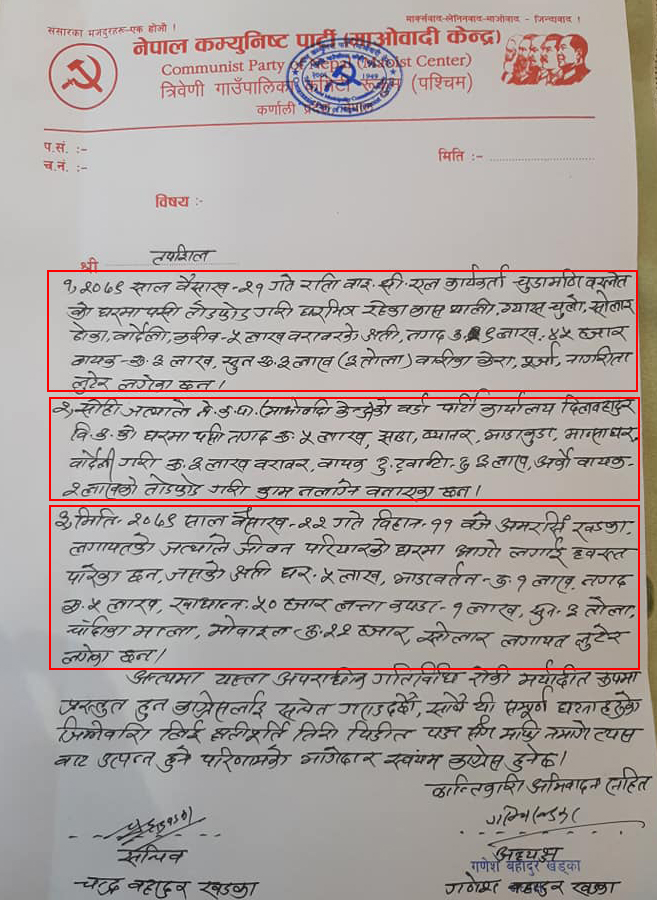 संसारका मजदुरहरू-एक होओ !
मार्क्सवाद-लेनिनवाद-माओवाद - जिन्दावाद !
नेपाल कम्युनिष्ट पार्टी (माओवादी केन्द्र)
Communist Party of Nepal (Maoist Center)
त्रिवेणी गाउँपालिका कमिटी रूकुम (पश्चिम)
कर्णाली प्रदेश नेपाल
प.सं. :-
च.नं. :-
मिति :-
विषय :-
श्री तपशिल
१, २०७९ साल वैसाख - २१ गते राति वाइ. सी. एल कार्यकर्ता चुडामणि वस्नेत
को घरमा पसी तोडफोड गरी घरभित्र रहेका कास थाली, ग्यास चुलो, सोलार
ढोका, वार्देली, करीव - ५ लाख वरावरको क्षती, तगद रू. ९ लाख, ४५ हजार
वायक - रू. ३ लाख, सुन रू. ३ लाख (३ तोला) पुर्जा, नागरिता
लुटेर लगेका छन् ।
२, सोही जत्थाले ने. क. पा. (माओवादी केन्द्र) को वडा पार्टी कार्यालय दिलवहादुर
वि. क. को घरमा पसी तगद रू. ५ लाख, झण्डा, व्यानर, भाडाकुडा, भान्साघर,
वार्देली गरी रू. ३ लाख वरावर, वायक अर्को वायक -
२ लाखको तोडफोड गरी काम नलाग्ने वनाएका छन् ।
३, मिति - २०७९ साल वैसाख - २२ गते विहान - ११ वजे अमरसिं खड्का
लगायतको जत्थाले जीवन परियारको घरमा आगो लगाई ध्वस्त
पारेका छन्, जसको क्षती घर - ५ लाख, भाडावर्तन - रू. १ लाख, तगद
रू. ५ लाख, खाद्यान्न - ५० हजार लत्ता कपडा - १ लाख, सुन - ३ तोला,
चाँदीका माला, मोवाइल - रू. २२ हजार, सोलार लगायत लुटेर
लगेका छन् ।
अन्त्यमा यस्ता अपराधिक गतिविधि रोकी मर्यादीत रूपमा
प्रस्तुत हुन काग्रेसलाई सचेत गराउदछौं, साथै यी सम्पूर्ण घटना हरूको
जिम्मेवारी लिई क्षतीपूर्ति तिरी पिडीत पक्ष सँग माफी नमागे त्यस
वाट उत्पन्न हुने परिणामको भागेदार स्वयंम काग्रेस हुनेछ ।
क्रान्तिकारी अभिवादन सहित
सचिव
अध्यक्ष
गणेश बहादुर खड्का
चन्द्र वहादुर खड्का
गणेश वहादुर खड्का